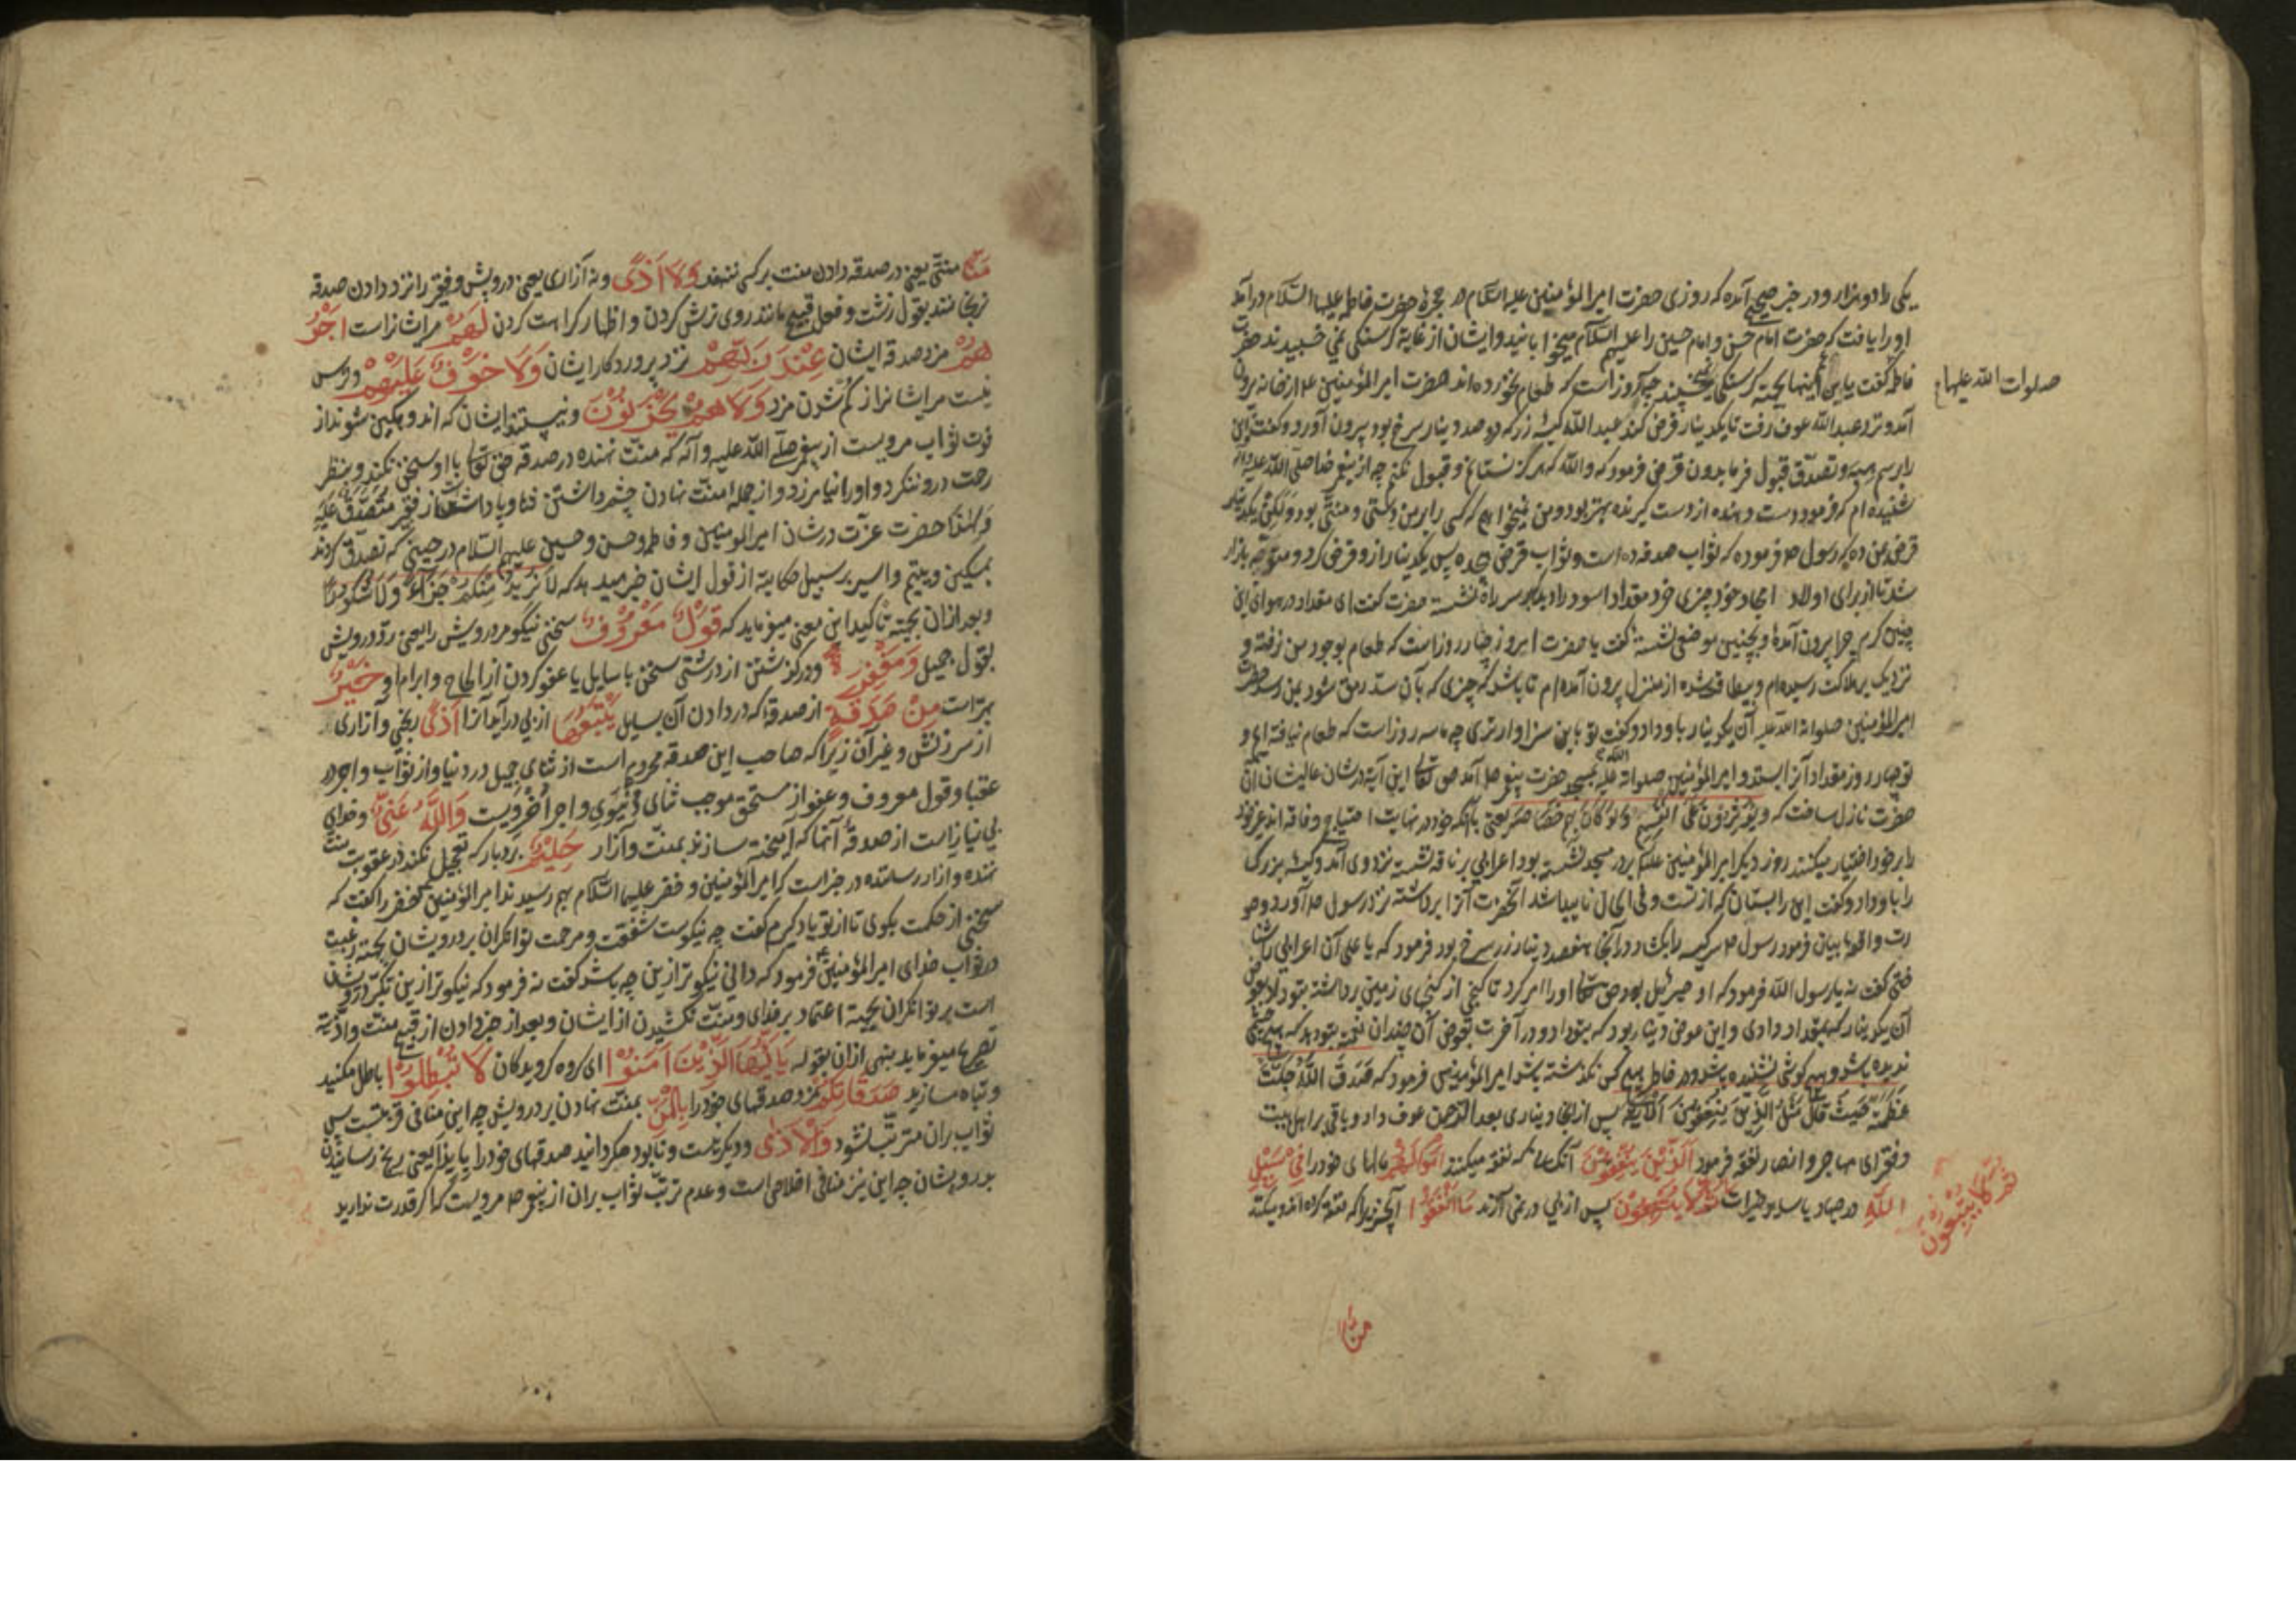 یکی را دو هزار و در خبر صحیح آمده که روزی حضرت امیر المؤمنین علیه السلام در حجرهٔ حضرت فاطمه علیها السلام درآمد
او را یافت که حضرت امام حسن و امام حسین را علیهم السلام میخوابانید و ایشان از غایة کرسنکی نمی خسپیدند حضرت
فاطمه کفت یا اینها بجهة کرسنکی نمی خسپند چه روز است که طعام نخورده اند حضرت امیر المؤمنین ع از خانه برون
صلوات الله علیها
آمد و نزد عبد الله عوف رفت تا یکدینار قرض کند عبد الله کیسهٔ زر که در صد دینار سرخ بود بیرون آورد و کفت این
را برسم هبه و تصدّق قبول فرما بدون قرض فرمود که والله که هرکز نستانم و قبول نکنم چه از پیغمبر خدا صلی الله علیه وآله
شنیده ام که فرمود دست دهنده از دست کیرنده بهتر بود و من نمیخواهم که کسی را بر من دستی و منتی بود ولکن یکدینار
قرض بمن ده که رسول ص فرموده که ثواب صدقه ده است و ثواب قرض هجده پس یکدینار از و قرض کرد و متوجه بازار
شد تا از برای اولاد امجاد خود چیزی خرد مقداد اسود را دید بر سر راه نشسته حضرت کفت ای مقداد در هوای این
چنین کرم چرا برون آمدهٔ و بچنین موضعی نشستهٔ کفت یا حضرت امروز چهار روز است که طعام بوجود من نرفته و
نزدیک بهلاکت رسیده ام و بیطاقت شده از منزل برون آمده ام تا باشد که چیزی که بآن سدّ رمق شود بمن رسد حضرت
امیر المؤمنین صلوات الله علیه آن یکدینار باو داد و کفت تو باین سزاوارتری چه ما سه روز است که طعام نیافته ایم و
تو چهار روز مقداد آنرا ابستد و امیر المؤمنین صلوات الله علیه بمسجد حضرت پیغمبر ص آمد حق تعالی این آیة در شان عالیشان آن
حضرت نازل ساخت که ویؤثرون علی انفسهم ولو کان بهم خصاصة یعنی با آنکه خود در نهایت احتیاج و فاقه اند غیر خود
را بر خود اختیار میکنند روز دیکر امیر المؤمنین علیه السلم بر در مسجد نشسته بود اعرابی بر ناقه نشسته نزد وی آمد و کیسهٔ بزرک
را باو داد و کفت این را بستان که از تست و فی الحال ناپیدا شد آنحضرت آنرا برداشته نزد رسول ص آورد و صو
رت واقعه را بیان فرمود رسول ص سر کیسه را بکشاد در آنجا هفصد دینار زر سرخ بود فرمود که یا علی آن اعرابی را شنا
ختی کفت نه یا رسول الله فرمود که او جبرئیل بود حق تعالی او را امر کرد تا کنجی از کنجهای زمین برداشته بتو داد بعوض
آن یکدینار که بمقداد دادی و این عوض دینار بود که بتو داد و در آخرت بعوض آن چندان نعمت بتو دهد که هیچ چشمی
ندیده باشد و هیچ کوشی نشنیده باشد و در خاطر هیچ کس نکذشته باشد امیر المؤمنین فرمود که صَدَقَ اللّهُ جَلَّتْ
عَظَمَتُهُ حَیثُ قالَ مَثَلُ الَّذِینَ یُنْفِقُونَ الآیة پس از آن دیناری بعبد الرحمن عوف داد و باقی بر اهل بیت
و فقرای مهاجر و انصار نفقه فرمود اَلَّذِینَ یُنْفِقُونَ آنکسانیکه نفقه میکنند اَمْوالَهُمْ مالهای خود را فِی سَبِیلِ
اللّهِ در جهاد یا سایر خیرات ثُمَّ لا یُتْبِعُونَ پس از پی در نمی آرند مَا اَنْفَقُوا آنچیزیرا که نفقه کرده اند و میکنند
ثم لا یتبعون
منّا
مَنًّا منتی یعنی در صدقه دادن منت بر کسی ننهند وَلا اَذًی و نه آزاری یعنی درویش و فقیر را نزد دادن صدقه
نرنجانند بقول زشت و فعل قبیح مانند روی ترش کردن و اظهار کراهت کردن لَهُمْ مر ایشانراست اَجْرُ
هُمْ مزد صدقه ایشان عِنْدَ رَبِّهِمْ نزد پروردکار ایشان وَلا خَوْفٌ عَلَیْهِمْ و ترس
نیست مر ایشانرا از کم شدن مزد وَلا هُمْ یَحْزَنُونَ و نیستند ایشان که اندوهکین شوند از
فوت ثواب مرویست از پیغمبر صلی الله علیه و آله که منت نهنده در صدقه حق تعالی با او سخن نکند و بنظر
رحمت درو ننکرد و او را نیامرزد و از جمله منت نهادن چشم داشتن ثنا و پاداشت از فقیر متصدّق علیه
ولهذا حضرت عزت در شان امیر المومنین و فاطمه و حسن و حسین علیهم السلام در حینی که تصدّق کردند
بمسکین و یتیم و اسیر بر سبیل حکایة از قول ایشان خبر میدهد که لا نُرِیدُ مِنْکُمْ جَزاءً وَلا شُکُورًا
و بعد از آن بجهة تأکید این معنی میفرماید که قَوْلٌ مَعْرُوفٌ سخن نیکو مر درویش را یعنی ردّ درویش
بقول جمیل وَمَغْفِرَةٌ و درکذشتن از درشتی سخن با سایل یا عفو کردن از الحاح و ابرام او خَیْرٌ
بهتر است مِنْ صَدَقَةٍ از صدقهٔ که در دادن آن بسایل یَتْبَعُها از پی درآید آنرا اَذًی رنجی و آزاری
از سرزنش و غیر آن زیرا که صاحب این صدقه محروم است از ثنای جمیل در دنیا و از ثواب و اجر در
عقبا و قول معروف و عفو از مستحق موجب ثنای دنیوی و اجر اخرویست وَاللّهُ غَنِیٌّ و خدای
بی نیاز است از صدقهٔ آنها که آمیخته سازند بمنت و آزار حَلِیمٌ بردبار که تعجیل نکند در عقوبت منت
نهنده و آزار رساننده در خبر است که امیر المؤمنین و خضر علیهما السلام بهم رسیدند امیر المؤمنین خضر را کفت که
سخنی از حکمت بکوی تا از تو یاد کیرم کفت چه نیکوست شفقت و مرحمت توانکران بر درویشان بجهة رغبت
در ثواب خدای امیر المؤمنین ع فرمود که دانی نیکوتر ازین چه باشد کفت نه فرمود که نیکوتر ازین تکبر درویشان
است بر توانکران بجهة اعتماد بر خدای و منت نکشیدن از ایشان و بعد از خبر دادن از قبح منت و اذیّة
تصریح میفرماید بنهی از آن بقوله یا اَیُّهَا الَّذِینَ آمَنُوا ای کروه کرویدکان لا تُبْطِلُوا باطل مکنید
و تباه مسازید صَدَقاتِکُمْ مزد صدقهای خود را بِالْمَنِّ بمنت نهادن بر درویش چه این منافی قربتست پس
ثواب بر آن مترتّب نشود وَالْاَذی و دیکر نیست و نابود مکردانید صدقهای خود را بایذا یعنی رنج رسانیدن
بدرویشان چه این نیز منافی اخلاص است و عدم ترتّب ثواب بر آن از پیغمبر ص مرویست که اکر قدرت ندارید